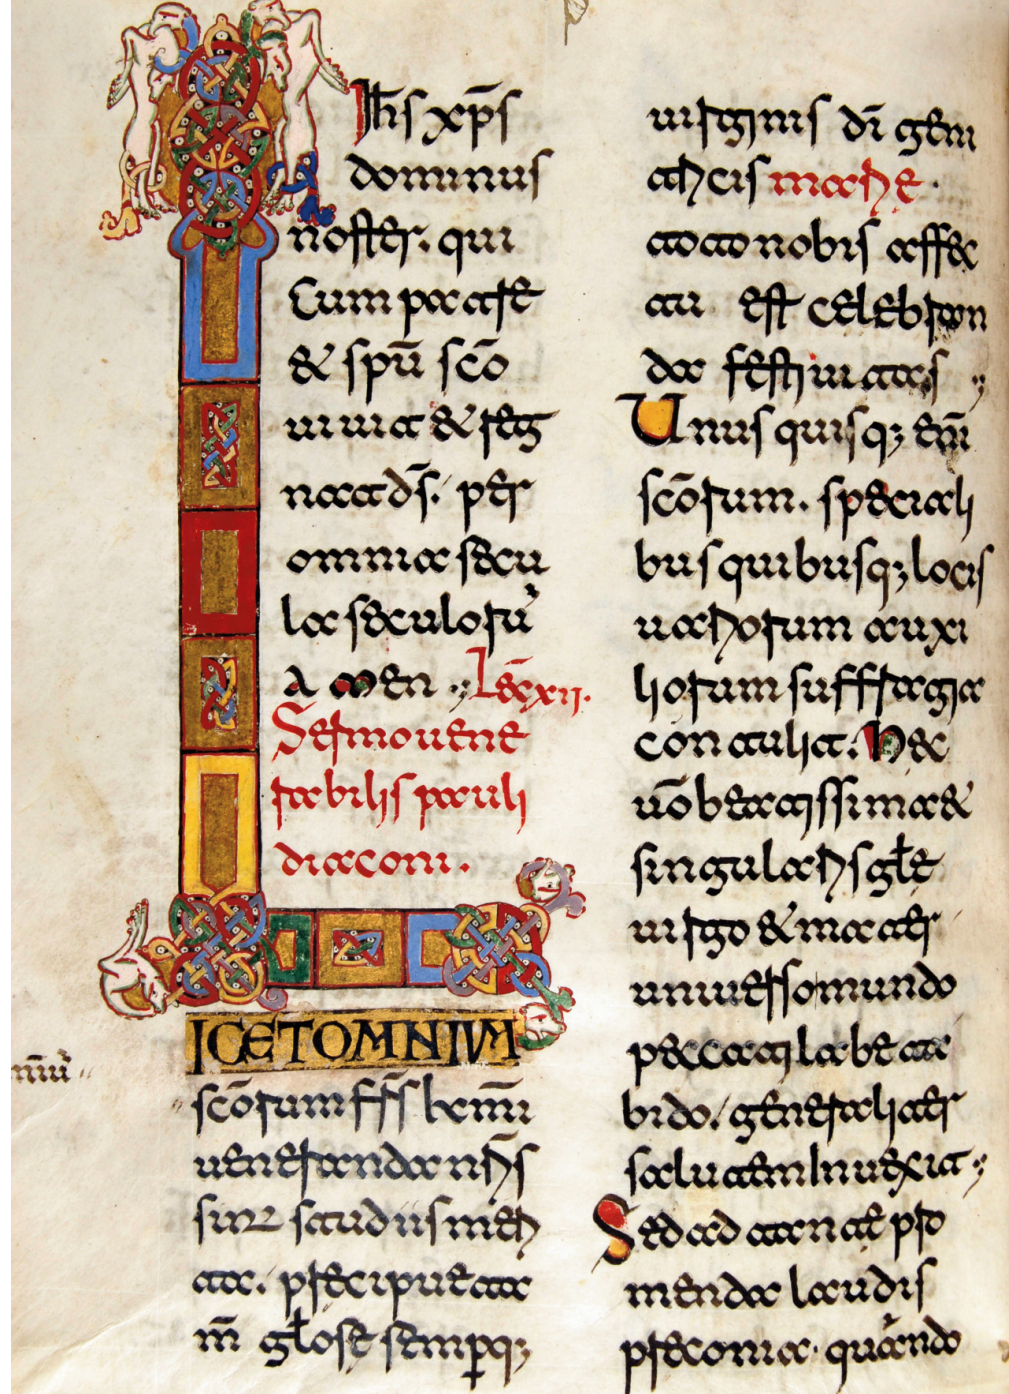 Ih̅s xp̅s
dominus
noster. qui
Cum patre
& spū scō
uiuit & reg
nat ds̅. per
omnia secu
la seculorū
Amen Lec̅ xii.
Sermo uene
rabilis pauli
diaconi.
LICET OMNIUM
niū
scōrum ff̅s km̅i
ueneranda nr̅is
sint studiis meri
ta. precipue ta
m̅ gl̅ose semperq;
uirginis dī geni
tricis marie.
toto nobis affec
tu est celebran
da festiuitas
Unus quisq; eni̅
scōrum. speciali
bus quibusq; locis
uariorum auxi
liorum suffragia
contulit. Hec
uō beatissima &
singularis gl̅e
uirgo & mater
uniuerso mundo
peccati labe ta
bido. generaliter
salutem inuexit
Sed ad tante pro
menda laudis
preconia. quando